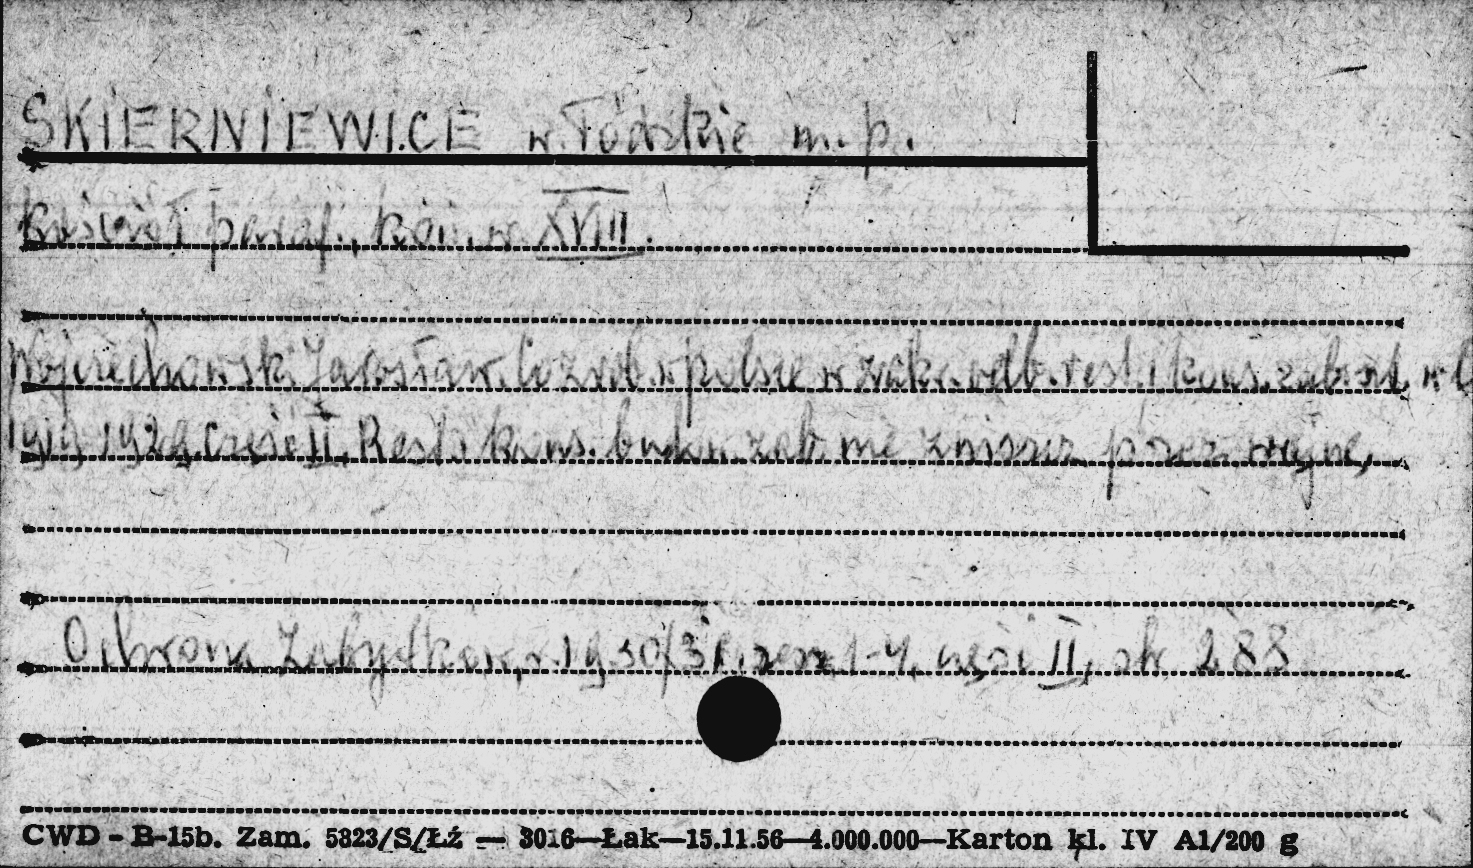 SKIERNIEWICE w. Łódzkie m. p.
Kościół paraf., kon. w XVIII.
Wojciechowski Jarosław. w polsce w zakr. odb. rest. i kons. zab. w l.
1919-1929. Część II. Rest. i kons. bud. zab. nie zniszcz przez wojnę,
Ochrona Zabytków, r. 1930/31, zesz 1-4, część II, str 288
CWD - B-15b. Zam. 5823/S/Łź — 3016—Łak—15.11.56—4.000.000—Karton kl. IV A1/200 g